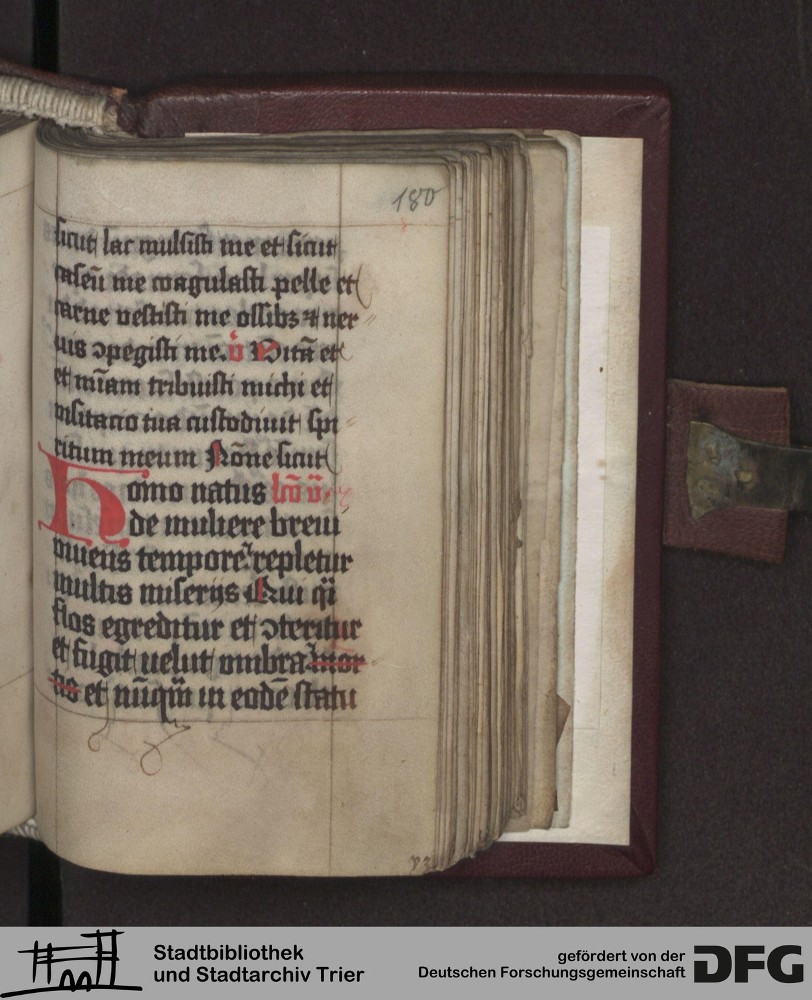 180
sicut lac mulsisti me et sicut
caseū me coagulasti pelle et
carne vestisti me ossibꝫ ⁊ ner
uis ꝯpegisti me. v̄ Vitā et
et mīam tribuisti michi et
visitacio tua custodiuit spi
ritum meum Nōne sicut
Homo natus
de muliere breui
viuens tempore repletur
multis miserijs Qui qͥ
flos egreditur et ꝯteritur
et fugit uelut vmbra mor
tis et nūqꝫ in eodē statu
Stadtbibliothek
und Stadtarchiv Trier
gefördert von der
Deutschen Forschungsgemeinschaft
DFG